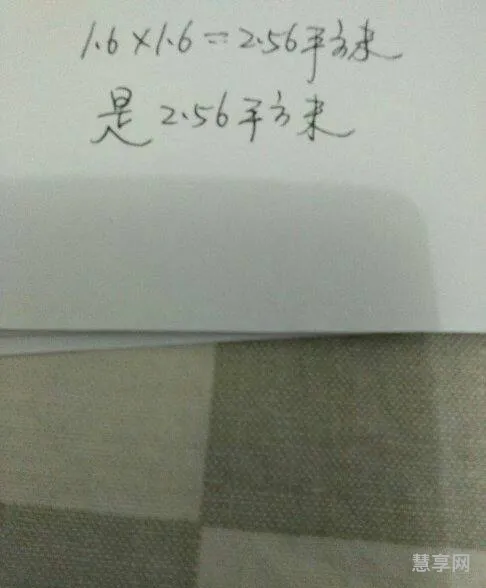 1.6×1.6=2.56平方米
是2.56平方米
慧享网